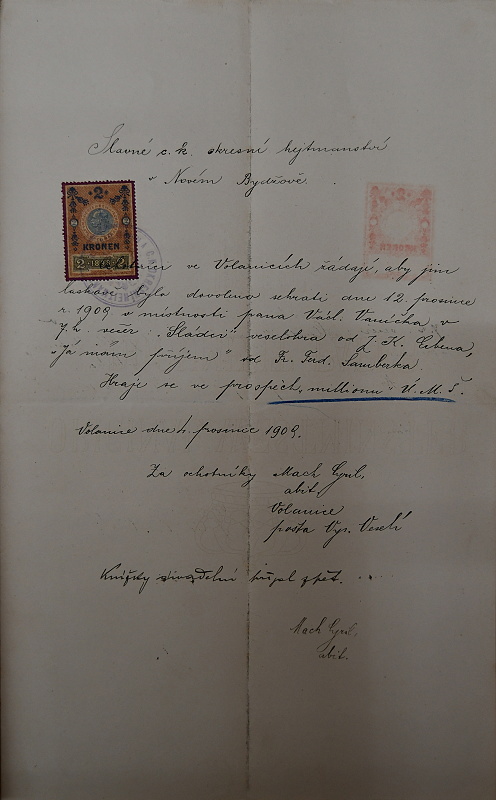 Slavné c. k. okresní hejtmanství
v Novém Bydžově.
2
KRONEN
2 1898 2
ve Volanicích žádají, aby jim
laskavě bylo dovoleno sehrati dne 12. prosince
r. 1909 v místnosti pana Václ. Vaníčka v
7. h. večer: „Sládci" veselohra od J. K.
„Já mám příjem" od Fr. Ferd. Šamberka.
Hraje se ve prospěch „millionu" Ú. M. Š.
Volanice dne 4. prosince 1909.
Za ochotníky Mach Cyril,
abit.
Volanice
pošta Vys. Veselí
Knížky divadelní zpět.
Mach Cyril,
abit.